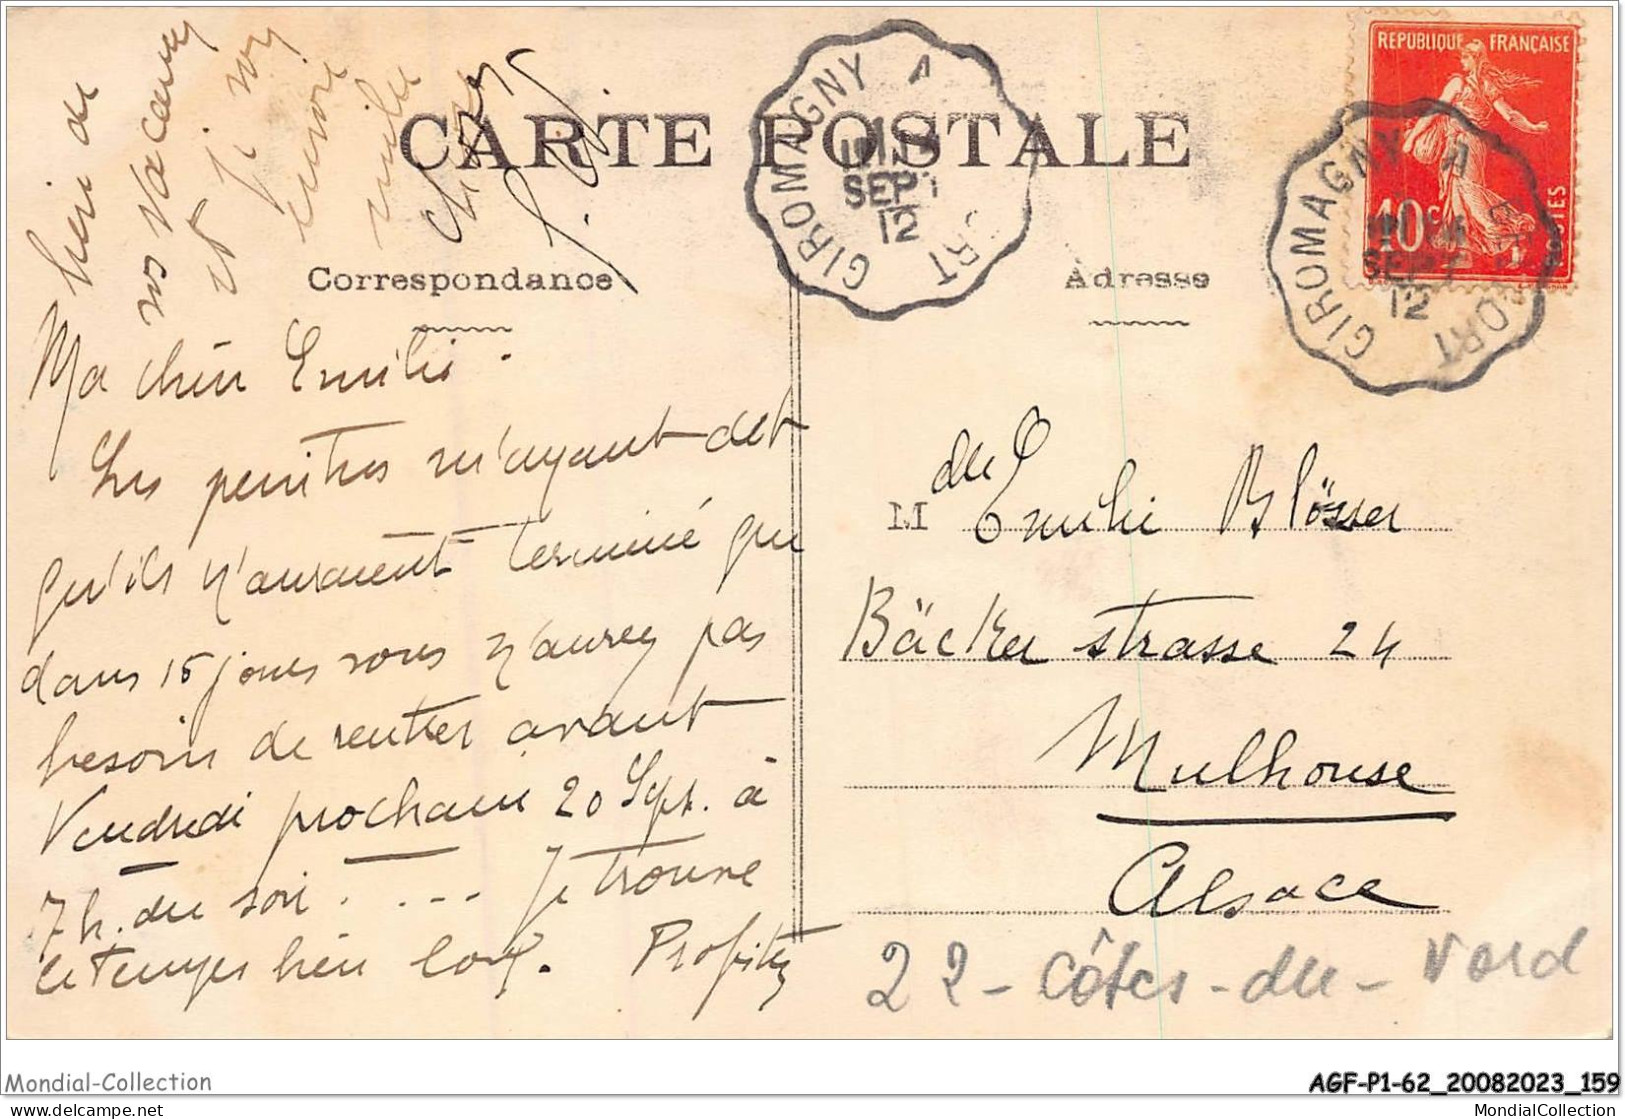 CARTE POSTALE
Correspondance
Adresse
REPUBLIQUE FRANÇAISE
10c
POSTES
GIROMAGNY A
SEPT
12
GIROMAGNY A
SEPT
12
Ma chère Emilie.
Les peintres m'ayant dit
qu'ils n'auraient terminé que
dans 15 jours vous n'aurez pas
besoin de rentrer avant
Vendredi prochain 20 Sept. à
7 h. du soir . . -- Je trouve
le temps bien long. Profitez
bien de
vos vacances
et
M elle Emilie Blösser
Bäckerstrasse 24
Mulhouse
Alsace
22 - Côtes - du - Nord
Mondial-Collection
AGF-P1-62_20082023_159
www.delcampe.net
MondialCollection